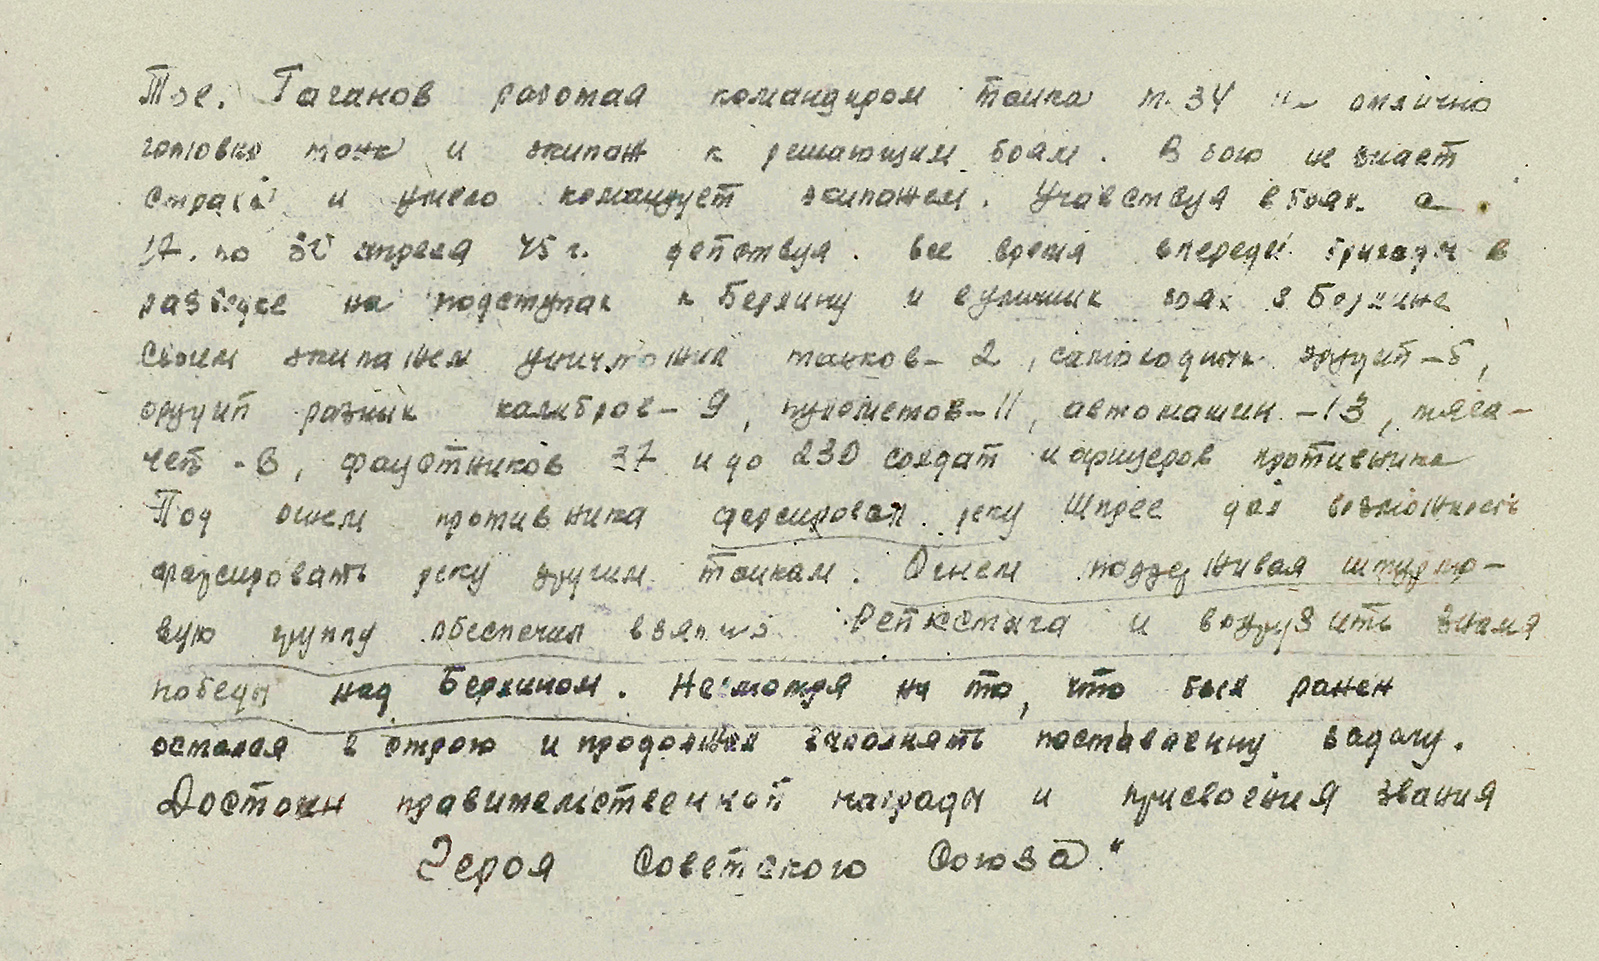 Тов. Гаганов работая командиром танка т-34 отлично
готовил танк и экипаж к решающим боям. В бою не знает
страха и умело командует экипажем. Участвуя в боях с
17. по 30 апреля 45 г. действуя все время впереди бригады в
разведке на подступах к Берлину и в уличных боях в Берлине
своим экипажем уничтожил танков - 2, самоходных орудий - 5,
орудий разных калибров - 9, пулеметов - 11, автомашин - 13, тяга-
чей - 8, фаустников 37 и до 230 солдат и офицеров противника
Под огнем противника форсировал реку Шпрее дал возможность
форсировать реку другим танкам. Огнем поддерживая штурмо-
вую группу обеспечил взятие Рейхстага и водрузить знамя
победы над Берлином. Несмотря на то, что был ранен
остался в строю и продолжал выполнять поставленну задачу.
Достоин правительственной награды и присвоения звания
Героя Советского Союза."